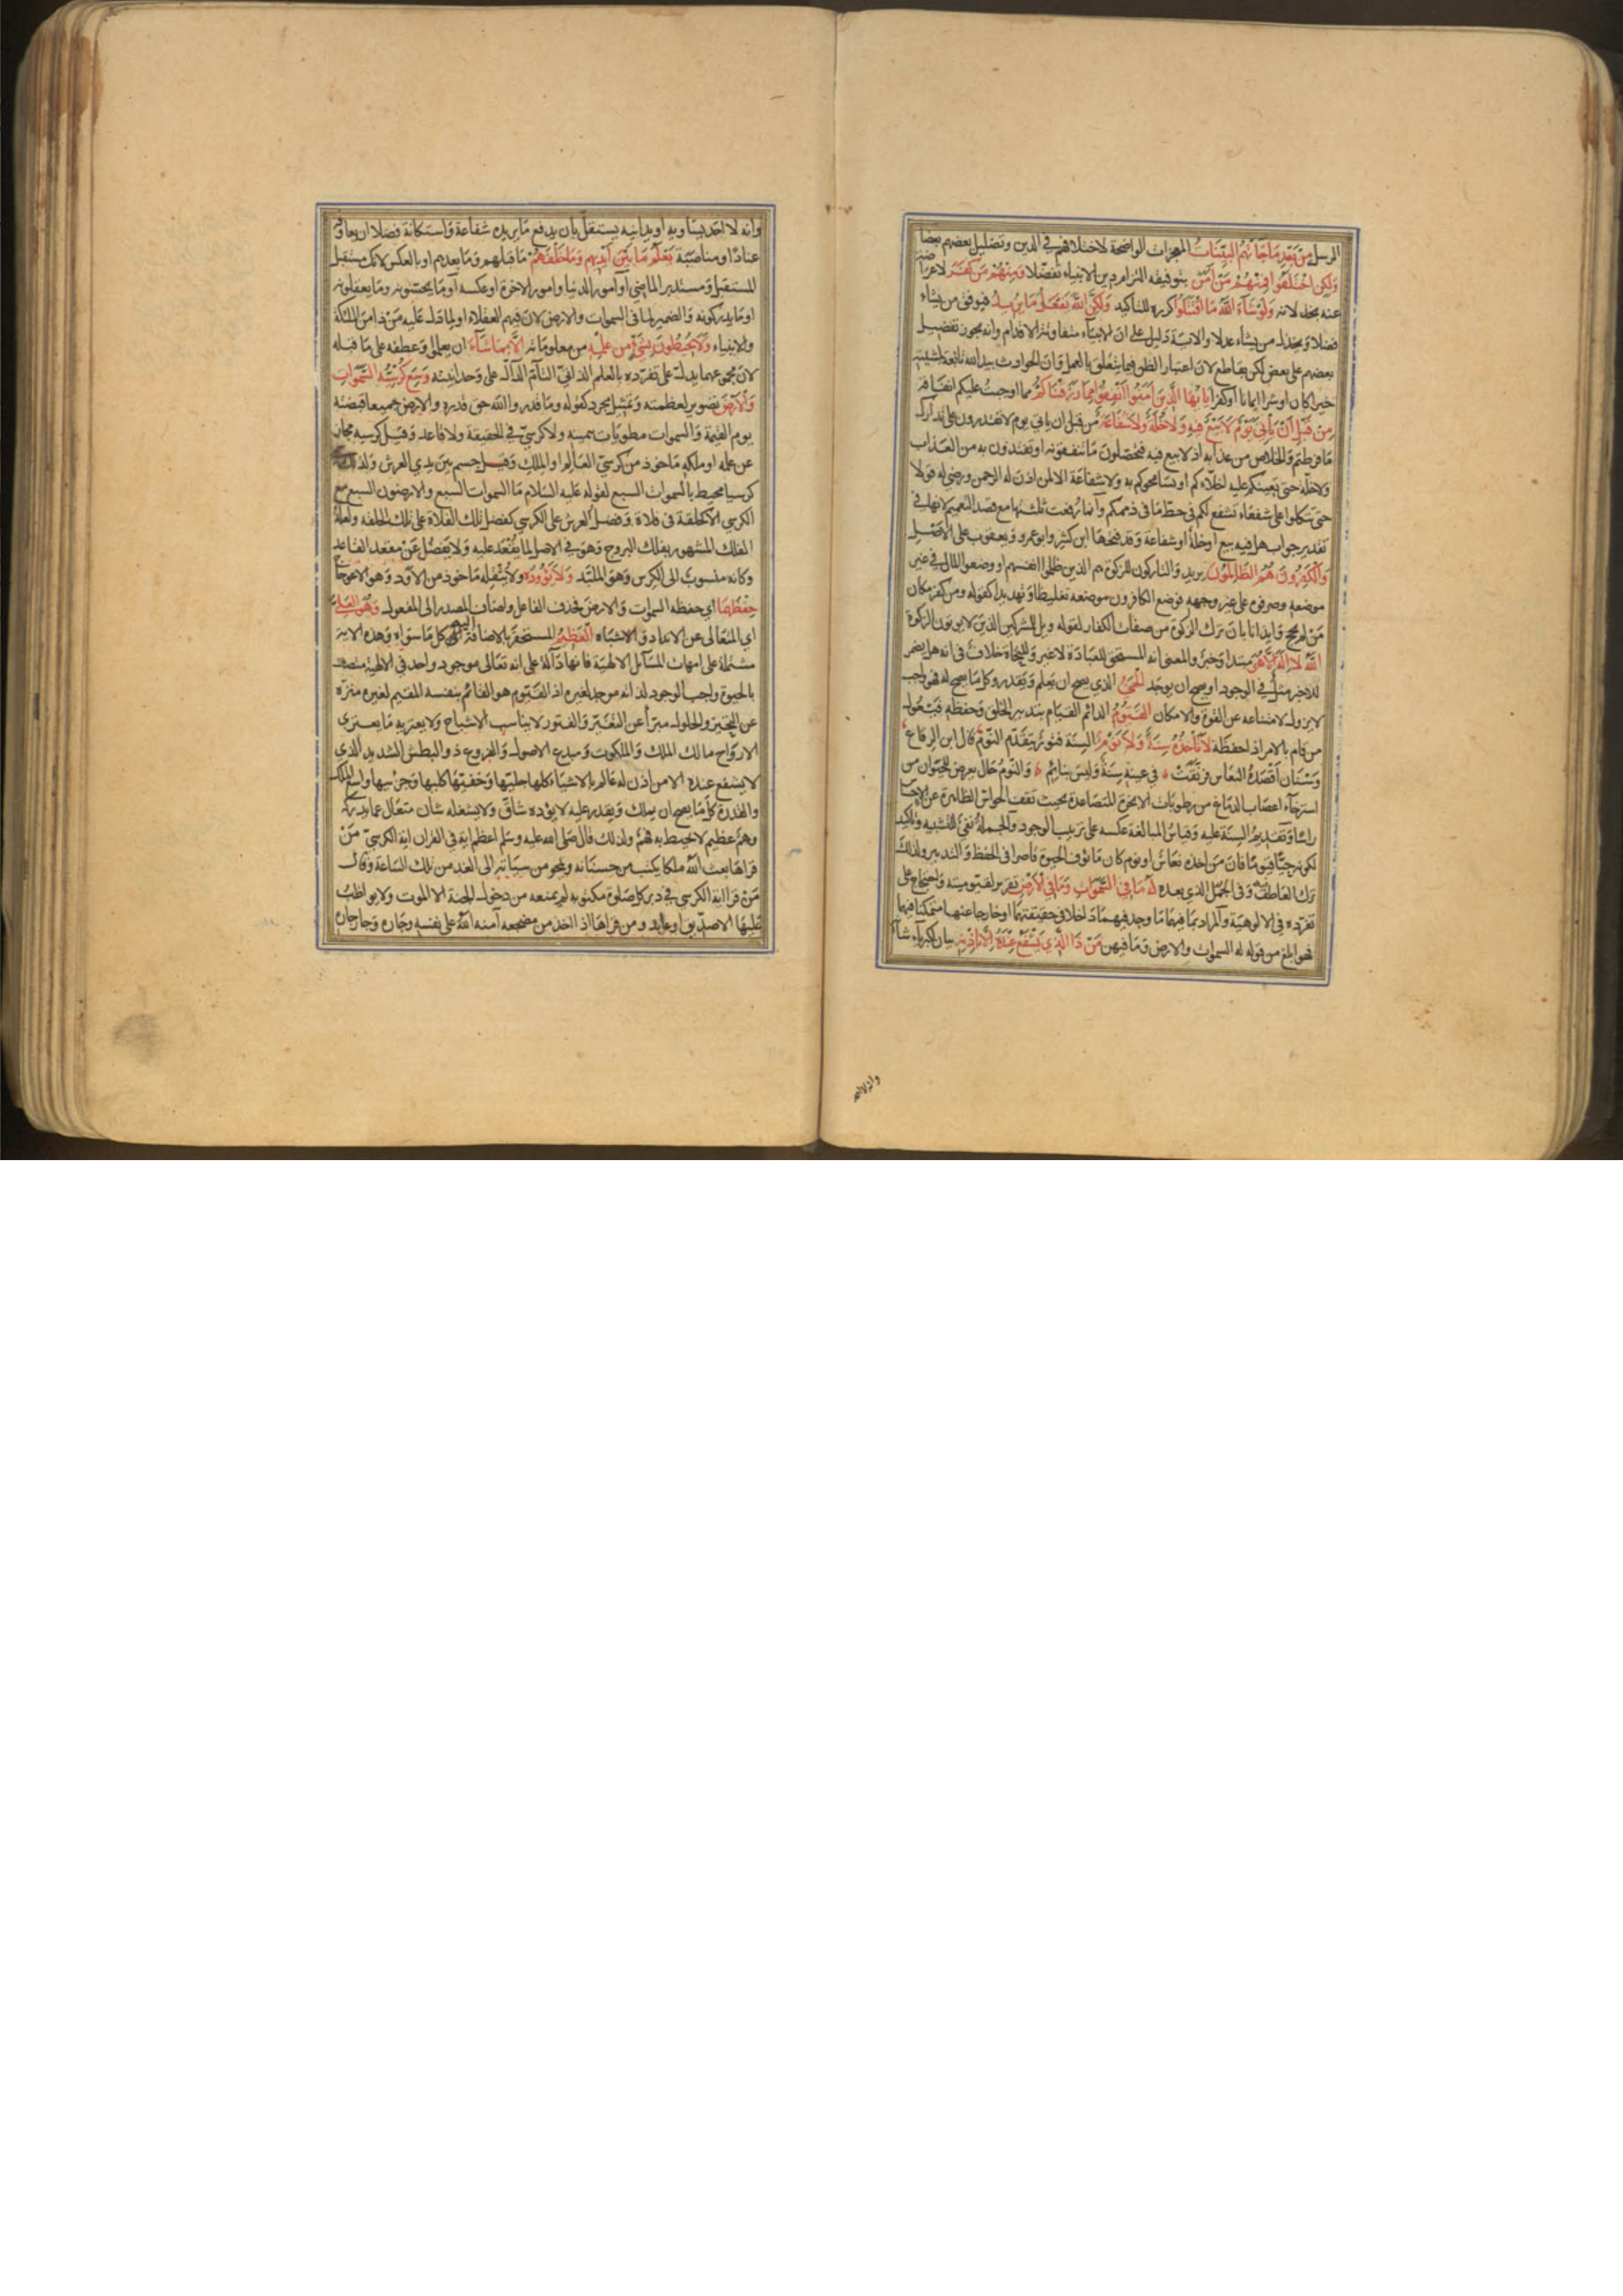 الرسل من بعد ما جاءتهم البينات المعجزات الواضحة لاختلافهم في الدين وتضليل بعضهم بعضا
ولكن اختلفوا فمنهم من آمن بتوفيقه التزام دين الانبياء تفضلا ومنهم من كفر لاعراضه
عنه بخذلانه ولو شاء الله ما اقتتلوا كرره للتأكيد ولكن الله يفعل ما يريد فيوفق من يشاء
فضلا ويخذل من يشاء عدلا والاية دليل على ان الانبياء متفاوتة الاقدام وانه يجوز تفضيل
بعضهم على بعض لكن بقاطع لان اعتبار الظن فيما يتعلق بالعمل وان الحوادث بيد الله تابعة لمشيته
خيرا كان او شرا ايمانا او كفرا يا ايها الذين آمنوا انفقوا مما رزقناكم مما اوجبت عليكم انفاقه
من قبل ان يأتي يوم لا بيع فيه ولا خلة ولا شفاعة من قبل ان ياتي يوم لا تقدرون على تدارك
ما فرطتم والخلاص من عذابه اذ لا بيع فيه فتحصلون ما تنفقونه او تفتدون به من العذاب
ولا خلة حتى يعينكم عليه اخلاءكم او يسامحوكم به ولا شفاعة الا لمن اذن له الرحمن ورضي له قولا
حتى تتكلوا على شفعاء تشفع لكم في حط ما في ذممكم وانما رفعت ثلثتها مع قصد التعميم لانها في
تقدير جواب هل فيه بيع او خلة او شفاعة وقد فتحها ابن كثير وابو عمرو ويعقوب على الاصل
والكافرون هم الظالمون يريد والتاركون للزكوة هم الذين ظلموا انفسهم او وضعوا المال في غير
موضعه وصرفوه على غير وجهه فوضع الكافرون موضعه تغليظا وتهديدا كقوله ومن كفر مكان
من لم يحج وايذانا بان ترك الزكوة من صفات الكفار لقوله وويل للمشركين الذين لا يؤتون الزكوة
الله لا اله الا هو مبتدا وخبر والمعنى انه المستحق للعبادة لا غير وللنحاة خلاف في انه هل يضمر
للاخبر مثل في الوجود او يصح ان يوجد الحي الذي يصح ان يعلم ويقدر وكل ما يصح له فهو واجب
لا يزول لامتناعه عن القوة والامكان القيوم الدائم القيام بتدبير الخلق وحفظه فيعول
من قام بالامر اذا حفظه لا تأخذه سنة ولا نوم السنة فتور يتقدم النوم قال ابن الرقاع
وسنان اقصده النعاس فرنقت في عينه سنة وليس بنائم والنوم حال يعرض للحيوان من
استرخاء اعصاب الدماغ من رطوبات الابخرة المتصاعدة بحيث تقف الحواس الظاهرة عن الاحساس
راسا وتقديم السنة عليه وقياس المبالغة عكسه على ترتيب الوجود والجملة نفي للتشبيه وتأكيد
لكونه حيا قيوما فان من اخذه نعاس او نوم كان مأوف الحيوة قاصرا في الحفظ والتدبير ولذلك
ترك العاطف فيه وفي الجمل الذي بعده له ما في السموات وما في الارض تقرير لقيوميته واحتجاج على
تفرده في الالوهية والمراد بما فيهما ما وجد فيهما داخلا في حقيقتهما او خارجا عنهما متمكنا فيهما
فهو ابلغ من قوله له السموات والارض وما فيهن من ذا الذي يشفع عنده الا باذنه بيان لكبرياء شانه
وانه لا احد
وانه لا احد يساويه او يدانيه يستقل بان يدفع ما يريده شفاعة واستكانة فضلا ان يعاوقه
عنادا او مناصبة يعلم ما بين ايديهم وما خلفهم ما قبلهم وما بعدهم او بالعكس لانك مستقبل
المستقبل ومستدبر الماضي او امور الدنيا وامور الاخرة او عكسه او ما يحسونه وما يعقلونه
او ما يدركونه والضمير لما في السموات والارض لان فيهم العقلاء او لما دل عليه من ذا من الملئكة
والانبياء ولا يحيطون بشئ من علمه من معلوماته الا بما شاء ان يعلموا وعطفه على ما قبله
لان مجموعهما يدل على تفرده بالعلم الذاتي التام الدال على وحدانيته وسع كرسيه السموات
والارض تصوير لعظمته وتمثيل مجرد كقوله وما قدروا الله حق قدره والارض جميعا قبضته
يوم القيمة والسموات مطويات بيمينه ولا كرسي في الحقيقة ولا قاعد وقيل كرسيه مجاز
عن علمه او ملكه ماخوذ من كرسي العالم او الملك وقيل جسم بين يدي العرش ولذلك سمي
كرسيا محيط بالسموات السبع لقوله عليه السلام ما السموات السبع والارضون السبع مع
الكرسي الا كحلقة في فلاة وفضل العرش على الكرسي كفضل تلك الفلاة على تلك الحلقة ولعله
الفلك المشهور بفلك البروج وهو في الاصل لما يقعد عليه ولا يفضل عن مقعد القاعد
وكانه منسوب الى الكرس وهو الملبد ولا يؤوده ولا يثقله ماخوذ من الاود وهو الاعوجاج
حفظهما اي حفظه السموات والارض فحذف الفاعل واضاف المصدر الى المفعول وهو العلي
اي المتعالى عن الانداد والاشباه العظيم المستحقر بالاضافة اليه كل ما سواه وهذه الاية
مشتملة على امهات المسآئل الالهية فانها دالة على انه تعالى موجود واحد في الالهية متصف
بالحيوة واجب الوجود لذاته موجد لغيره اذ القيوم هو القائم بنفسه المقيم لغيره منزه
عن التحيز والحلول مبرأ عن التغير والفتور لا يناسب الاشباح ولا يعتريه ما يعتري
الارواح مالك الملك والملكوت ومبدع الاصول والفروع ذو البطش الشديد الذي
لا يشفع عنده الا من اذن له عالم بالاشياء كلها جليها وخفيها كليها وجزئيها واسع الملك
والقدرة كل ما يصح ان يملك ويقدر عليه لا يؤده شاق ولا يشغله شان متعال عما يدركه
وهم عظيم لا يحيط به فهم ولذلك قال صلى الله عليه وسلم اعظم اية في القران اية الكرسي من
قراها بعث الله ملكا يكتب من حسناته ويمحو من سيآته الى الغد من تلك الساعة وقال
من قرا اية الكرسي في دبر كل صلوة مكتوبة لم يمنعه من دخول الجنة الا الموت ولا يواظب
عليها الا صديق او عابد ومن قراها اذا اخذ من مضجعه آمنه الله على نفسه وجاره وجار جاره